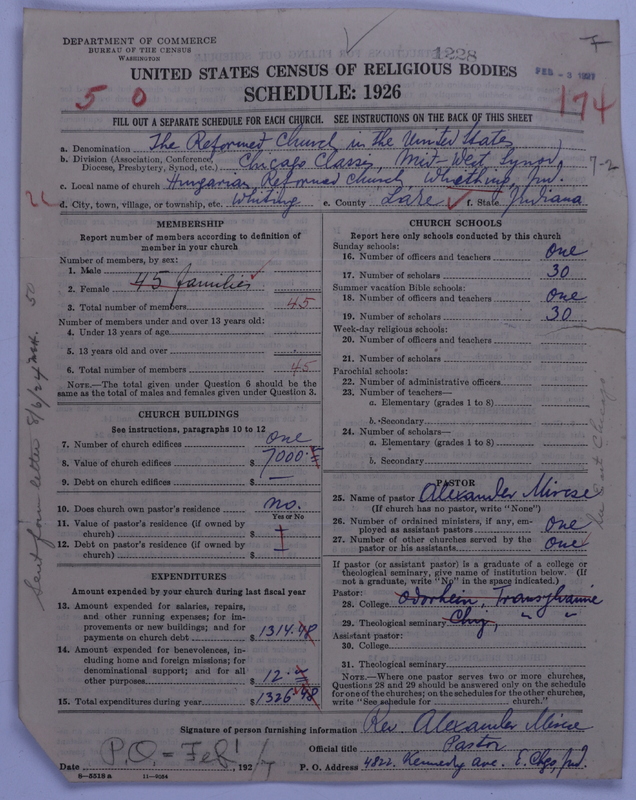 DEPARTMENT OF COMMERCE
BUREAU OF THE CENSUS
WASHINGTON
1228
FEB - 3 1927
UNITED STATES CENSUS OF RELIGIOUS BODIES
SCHEDULE: 1926
5 0
174
FILL OUT A SEPARATE SCHEDULE FOR EACH CHURCH. SEE INSTRUCTIONS ON THE BACK OF THIS SHEET
a. Denomination The Reformed Church in the United States
b. Division (Association, Conference, Diocese, Presbytery, Synod, etc.) Chicago Classis, Mid-West Synod,
7-2
c. Local name of church Hungarian Reformed Church Whiting, Ind.
d. City, town, village, or township, etc. Whiting e. County Lake f. State Indiana
MEMBERSHIP
Report number of members according to definition of
member in your church
Number of members, by sex:
1. Male
2. Female 45 families
3. Total number of members 45
Number of members under and over 13 years old:
4. Under 13 years of age
5. 13 years old and over
6. Total number of members 45
NOTE.—The total given under Question 6 should be the
same as the total of males and females given under Question 3.
CHURCH BUILDINGS
See instructions, paragraphs 10 to 12
7. Number of church edifices one
8. Value of church edifices $ 7000.
9. Debt on church edifices $ —
10. Does church own pastor's residence? no.
Yes or No
11. Value of pastor's residence (if owned by
church) $
12. Debt on pastor's residence (if owned by
church) $
EXPENDITURES
Amount expended by your church during last fiscal year
13. Amount expended for salaries, repairs,
and other running expenses; for im-
provements or new buildings; and for
payments on church debt $ 1314.48
14. Amount expended for benevolences, in-
cluding home and foreign missions; for
denominational support; and for all
other purposes $ 12.
15. Total expenditures during year $ 1326.48
CHURCH SCHOOLS
Report here only schools conducted by this church
Sunday schools:
16. Number of officers and teachers one
17. Number of scholars 30
Summer vacation Bible schools:
18. Number of officers and teachers one
19. Number of scholars 30
Week-day religious schools:
20. Number of officers and teachers
21. Number of scholars
Parochial schools:
22. Number of administrative officers
23. Number of teachers—
a. Elementary (grades 1 to 8)
b. Secondary
24. Number of scholars—
a. Elementary (grades 1 to 8)
b. Secondary
PASTOR
25. Name of pastor Alexander Mircse
(If church has no pastor, write "None")
26. Number of ordained ministers, if any, em-
ployed as assistant pastors one
27. Number of other churches served by the
pastor or his assistants one
If pastor (or assistant pastor) is a graduate of a college or
theological seminary, give name of institution below. (If
not a graduate, write "No" in the space indicated.)
Pastor:
28. College Odorhein, Transylvanie
29. Theological seminary Cluj, " "
Assistant pastor:
30. College
31. Theological seminary
NOTE.—Where one pastor serves two or more churches,
Questions 28 and 29 should be answered only on the schedule
for one of the churches; on the schedules for the other churches,
write "See schedule for church."
Signature of person furnishing information Rev. Alexander Mircse
Official title Pastor
Date P.O. = Feb 1, 1927
P. O. Address 4822 Kennedy Ave. E. Chgo, Ind.
8—5518 a 11—9264
Sent form letter 8/6/27